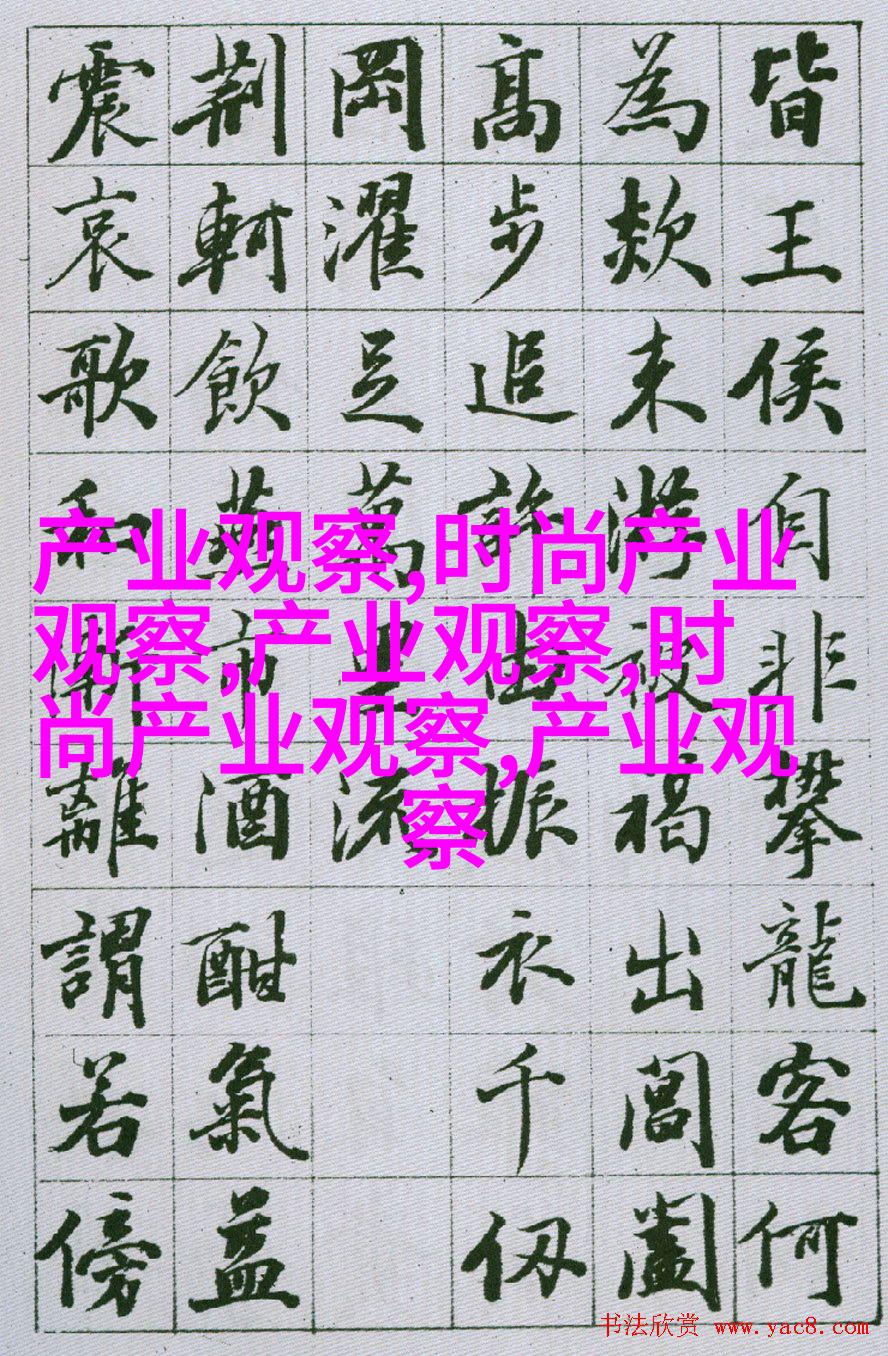 皆王侯自非攀龍客何
為欻来游被褐出閶闔
高步追許由振衣千仞
岡濯足萬里流
荊軻飲燕市酒酣氣益
震哀歌和漸離謂若傍
产业观察,时尚产业
观察,产业观察,时
尚产业观察,产业观
察
书法欣赏 www.yac8.com